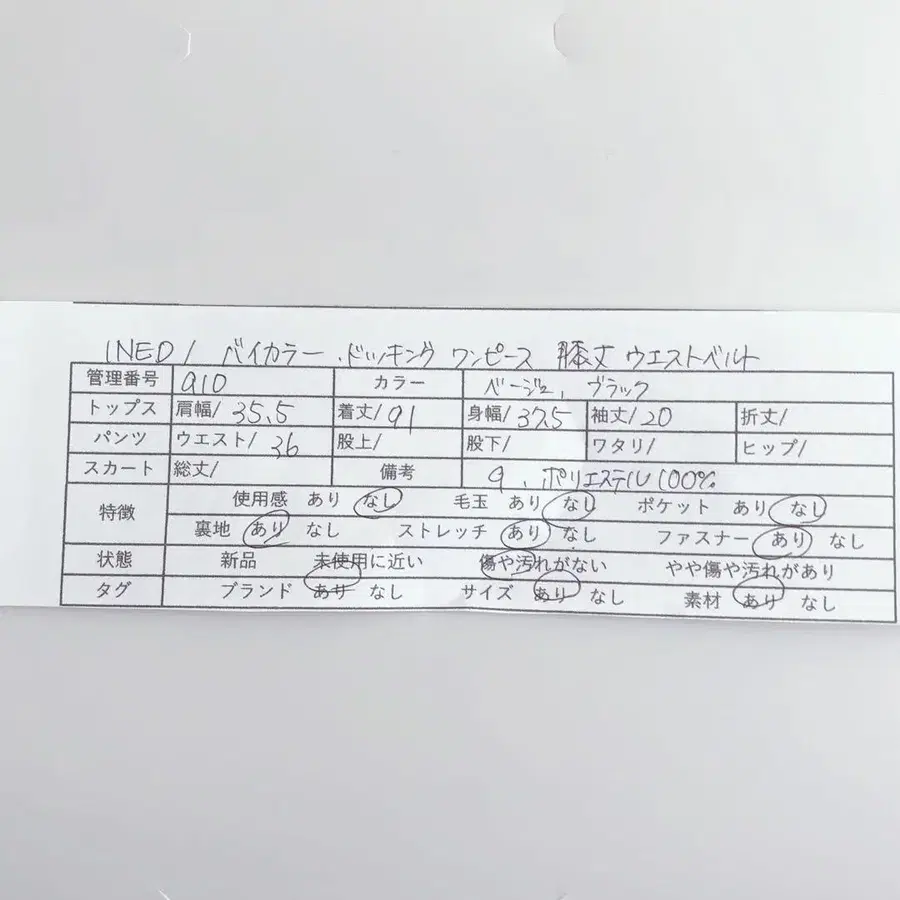 INED/ バイカラー ドッキング ワンピース 膝丈 ウエストベルト
管理番号 a10 カラー ベージュ, ブラック
トップス 肩幅/ 35.5 着丈/ 91 身幅/ 37.5 袖丈/ 20 折丈/
パンツ ウエスト/ 36 股上/ 股下/ ワタリ/ ヒップ/
スカート 総丈/ 備考 9, ポリエステル 100%
特徴 使用感 あり なし 毛玉 あり なし ポケット あり なし
裏地 あり なし ストレッチ あり なし ファスナー あり なし
状態 新品 未使用に近い 傷や汚れがない やや傷や汚れがあり
タグ ブランド あり なし サイズ あり なし 素材 あり なし